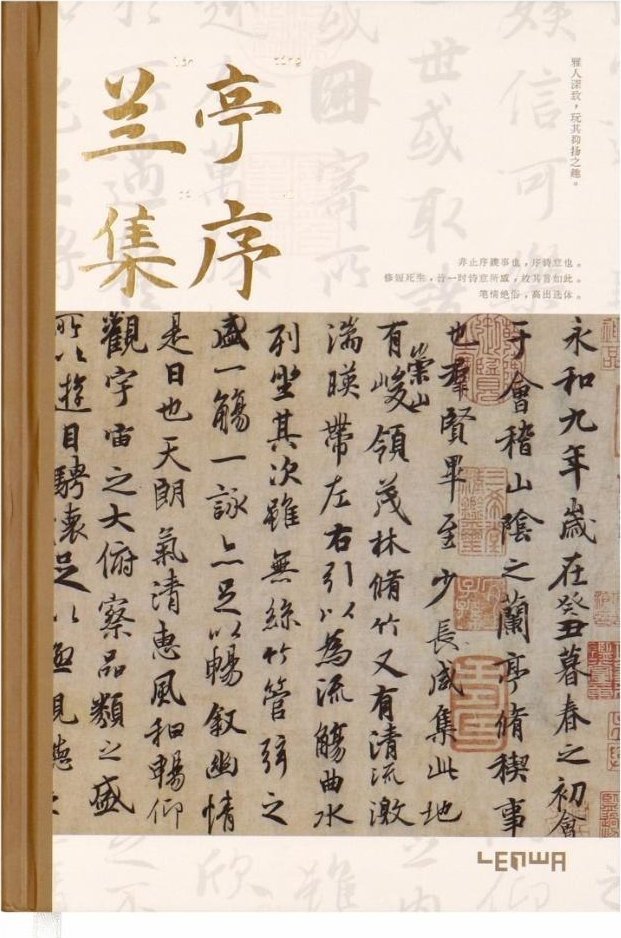 兰亭
集序
雅人深致，玩其抑扬之趣。
非止序禊事也，序诗意也。
修短死生，皆一时诗意所感，故其言如此。
笔情绝俗，高出选体。
永和九年歲在癸丑暮春之初會
于會稽山陰之蘭亭脩稧事
也羣賢畢至少長咸集此地
有崇山峻領茂林脩竹又有清流激
湍暎帶左右引以為流觴曲水
列坐其次雖無絲竹管弦之
盛一觴一詠亦足以暢敘幽情
是日也天朗氣清惠風和暢仰
觀宇宙之大俯察品類之盛
所以遊目騁懷足以極視聽之
LENWA